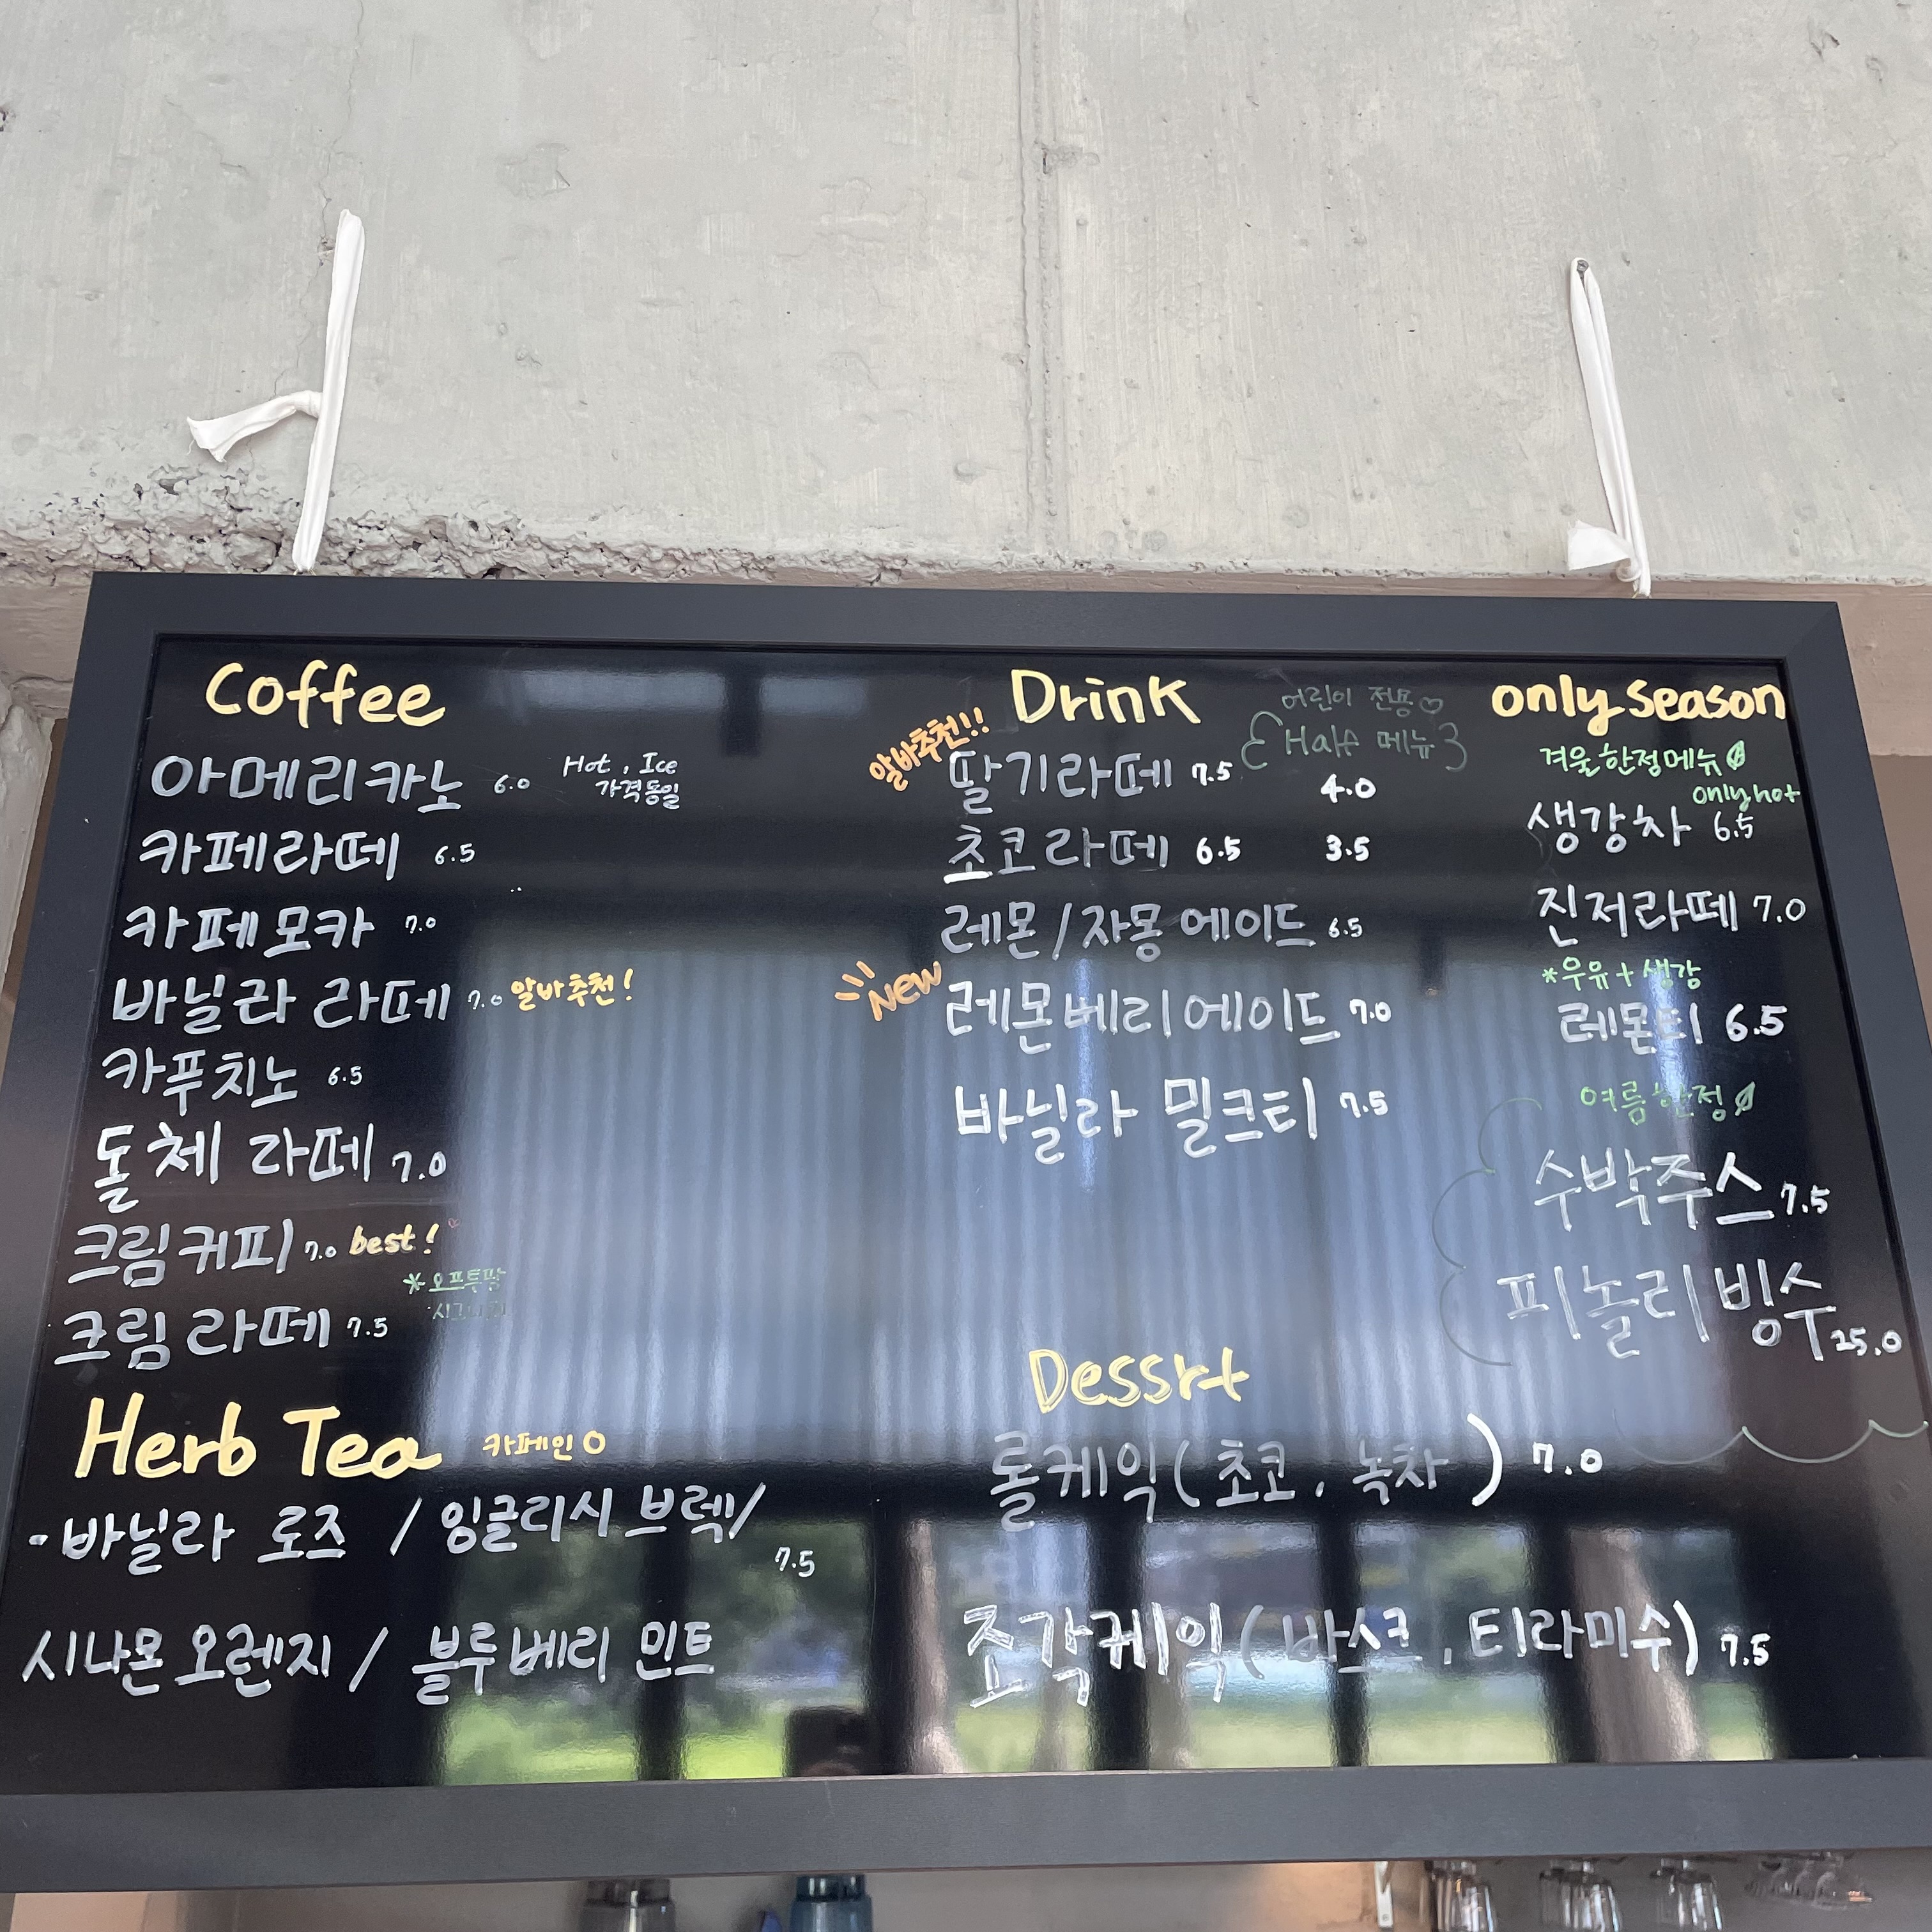 Coffee
아메리카노 6.0 Hot, Ice
가격동일
카페라떼 6.5
카페모카 7.0
바닐라 라떼 7.0 알바추천!
카푸치노 6.5
돌체 라떼 7.0
크림커피 7.0 best!
*오프투팜
크림라떼 7.5
Herb Tea 카페인 O
·바닐라 로즈 / 잉글리시 브렉/
7.5
시나몬오렌지 / 블루베리 민트
Drink
어린이 전용♡
{Half 메뉴}
알바추천!!
딸기라떼 7.5 4.0
초코라떼 6.5 3.5
레몬/자몽에이드 6.5
New
레몬베리에이드 7.0
바닐라 밀크티 7.5
Dessrt
롤케익(초코, 녹차) 7.0
조각케익(바스크, 티라미수) 7.5
only season
겨울한정메뉴
only hot
생강차 6.5
진저라떼 7.0
*우유+생강
레몬티 6.5
여름한정
수박주스 7.5
피놀리빙수 25.0